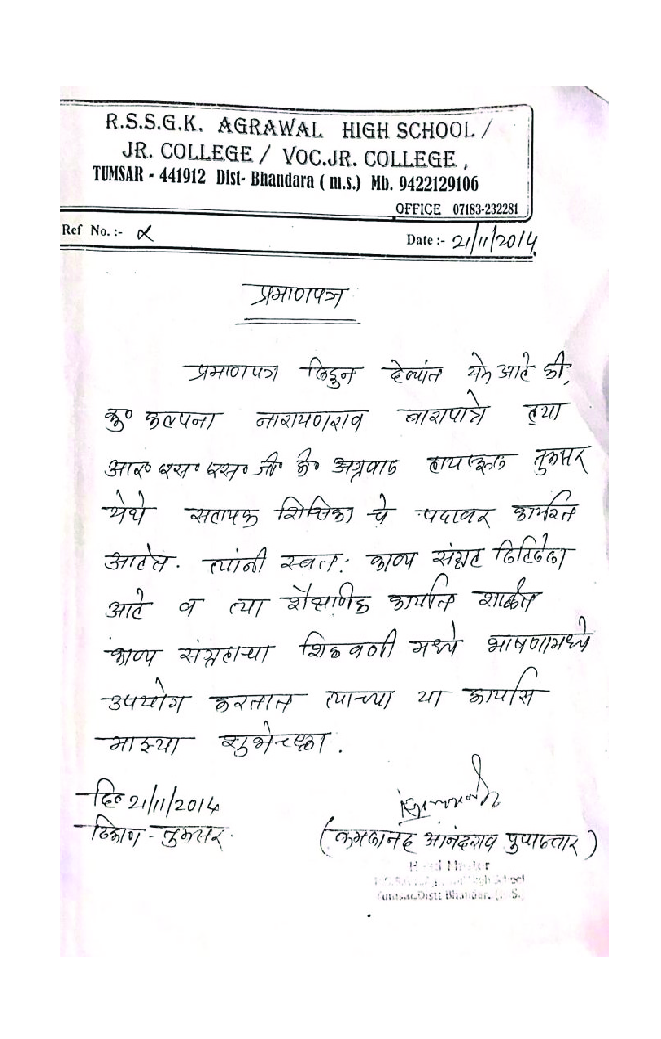 R.S.S.G.K. AGRAWAL HIGH SCHOOL /
JR. COLLEGE / VOC.JR. COLLEGE,
TUMSAR - 441912 Dist- Bhandara ( m.s.) Mb. 9422129106
OFFICE 07183-232281
Ref No. :-
Date :- 21/11/2014
प्रमाणपत्र
प्रमाणपत्र लिहून देण्यांत येत आहे की,
कु० कल्पना नारायणराव त्या
आर० एस० एस० जी० के० अग्रवाल हायस्कूल तुमसर
येथे सहायक शिक्षिका चे पदावर कार्यरत
आहेत. त्यांनी स्वतः काव्य संग्रह लिहिलेला
आहे व त्या शैक्षणिक कार्यात शाळेत
काव्य संग्रहाच्या शिकवणी मध्ये भाषणामध्ये
उपयोग करतात त्याच्या या कार्यास
माझ्या शुभेच्छा.
दि० 21/11/2014
ठिकाण - तुमसर.
(कमलानंद आनंदराव )
Head Master
Tumsar, Distt. Bhandara. (M.S.)